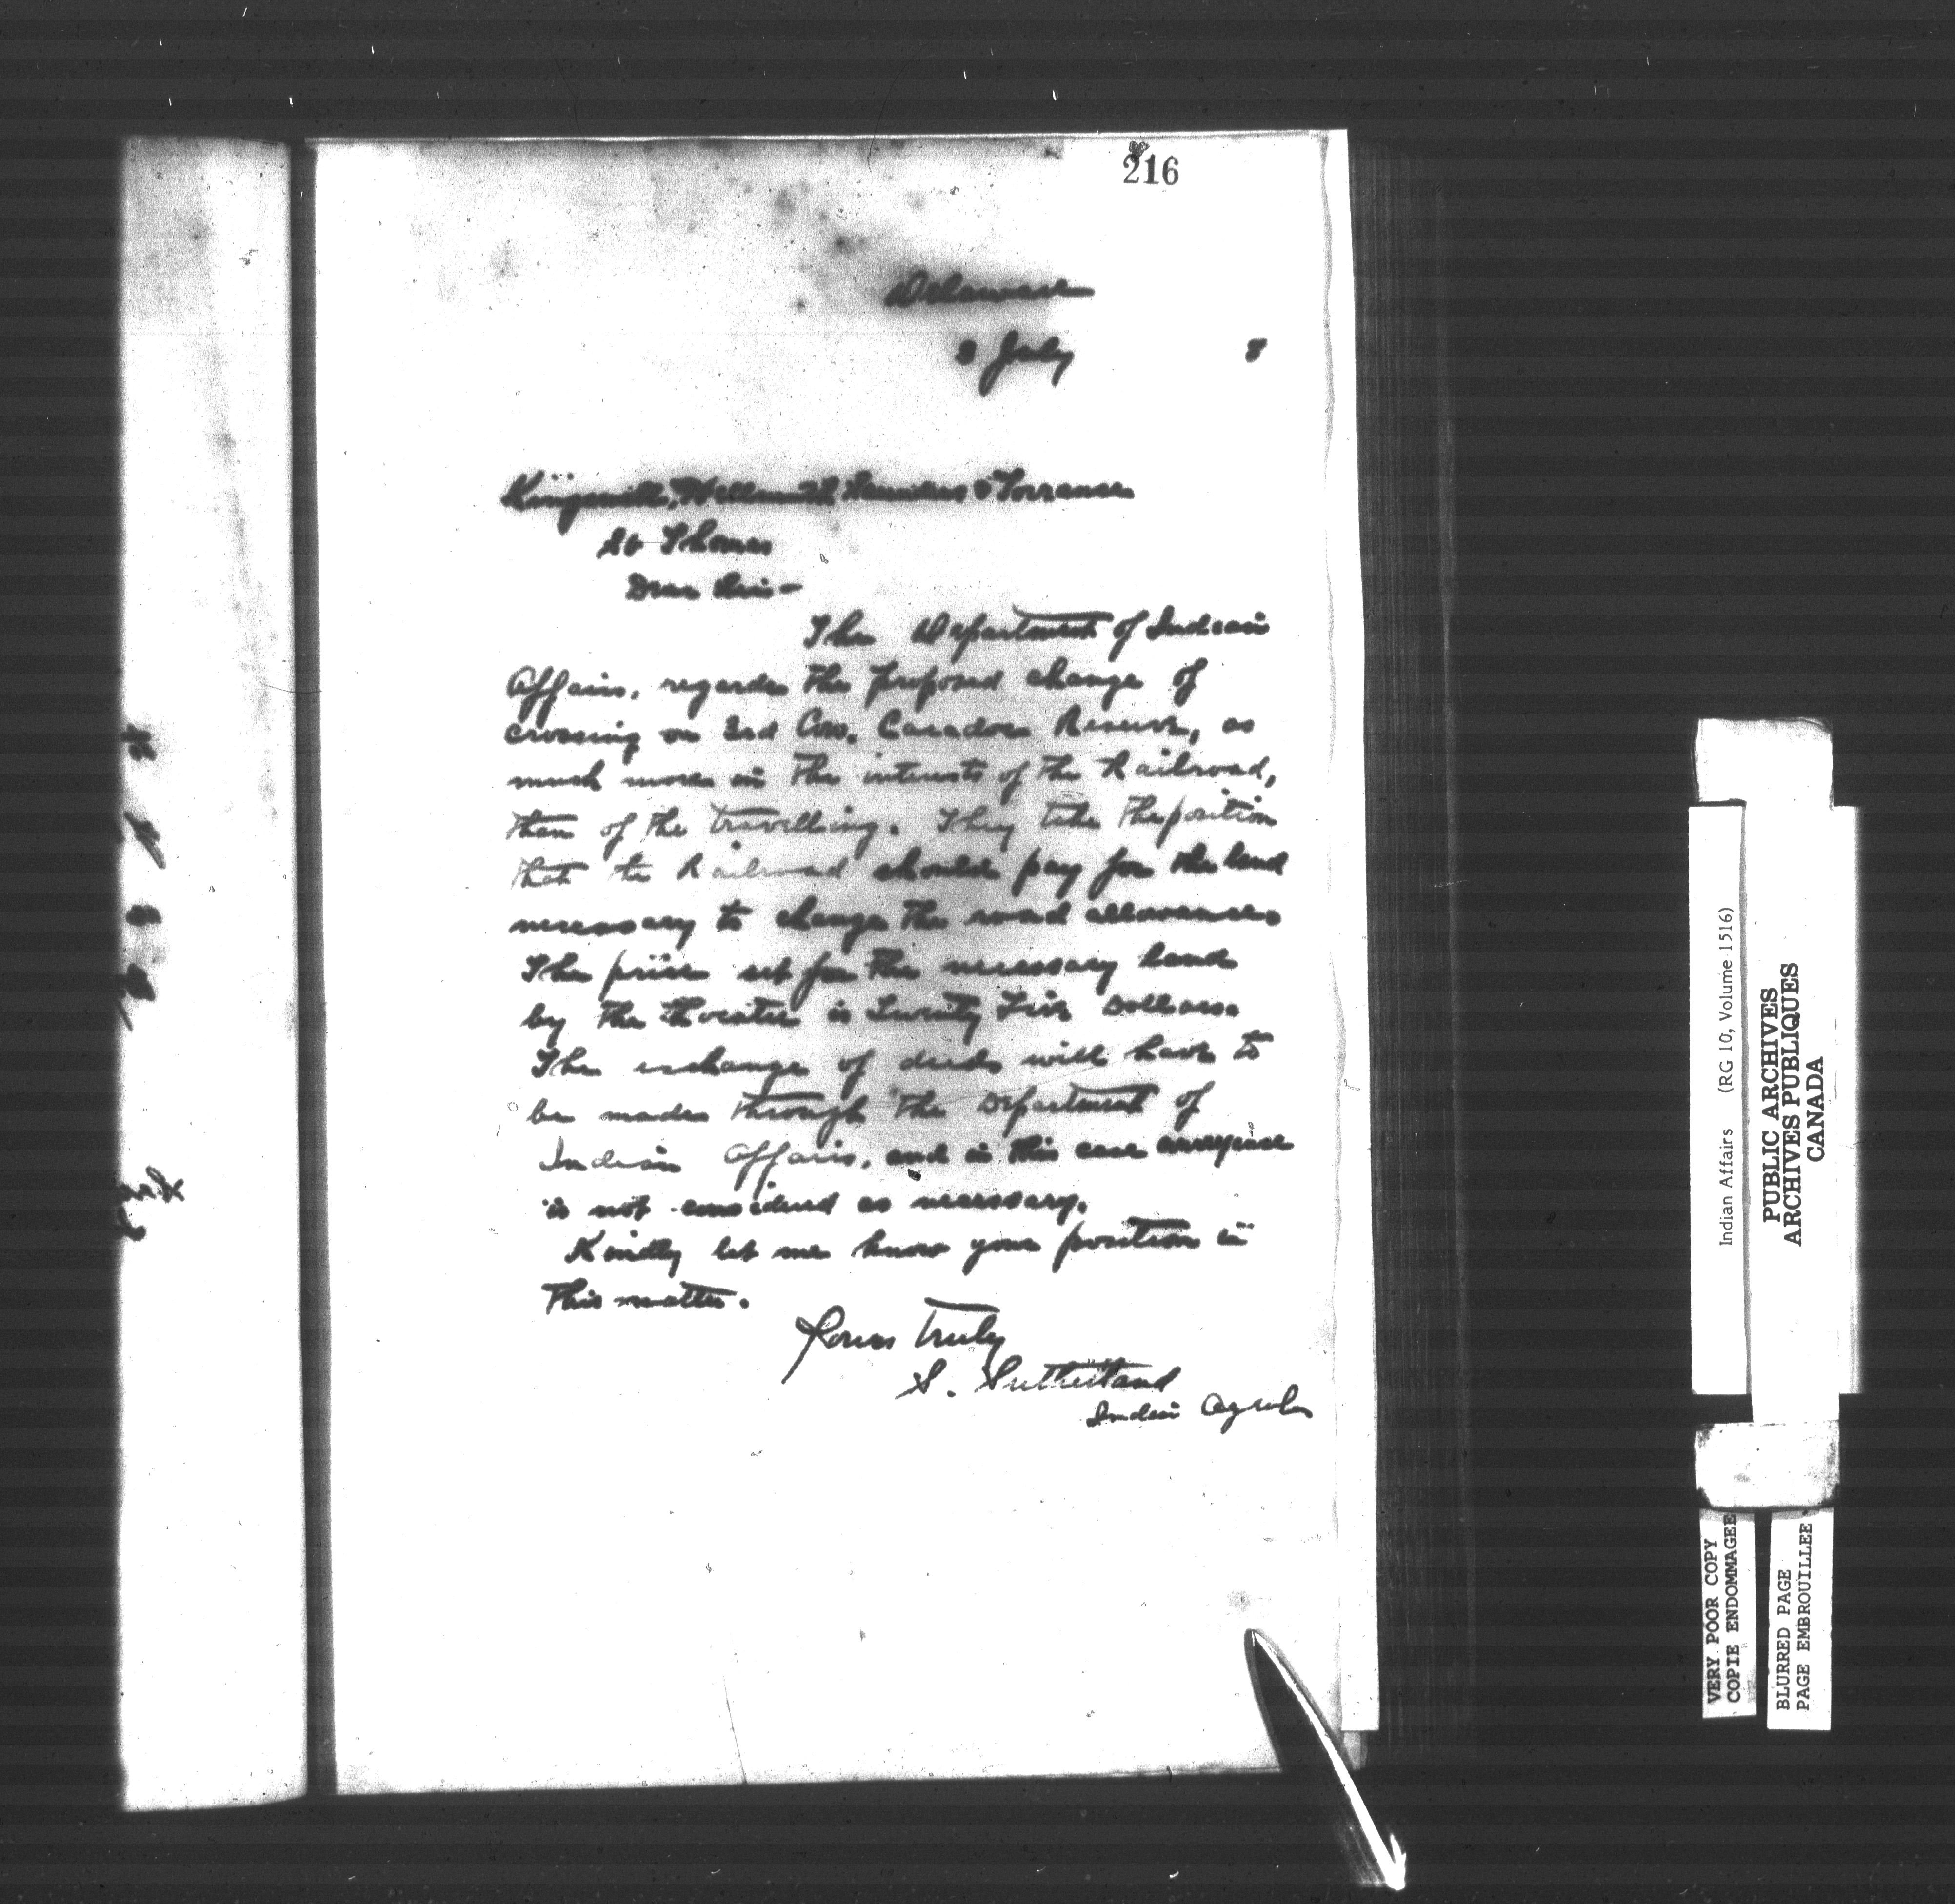 216
Delaware
3 July 8
Kingsmill, Hellmuth, Saunders & Torrance
St Thomas
Dear Sirs -
The Department of Indian
Affairs, regards the proposed change of
crossing on 3rd Con. Caradoc Reserve, as
much more in the interests of the Railroad,
than of the travelling. They take the position
that the Railroad should pay for the land
necessary to change the road allowance
The price set for the necessary land
by the is Twenty Five Dollars.
The exchange of deeds will have to
be made through the Department of
Indian Affairs, and in this case
is not considered as necessary.
Kindly let me know your position in
this matter.
Yours truly
S. Sutherland
Indian Agent
Indian Affairs (RG 10, Volume 1516)
PUBLIC ARCHIVES
ARCHIVES PUBLIQUES
CANADA
VERY POOR COPY
COPIE ENDOMMAGEE
BLURRED PAGE
PAGE EMBROUILLEE